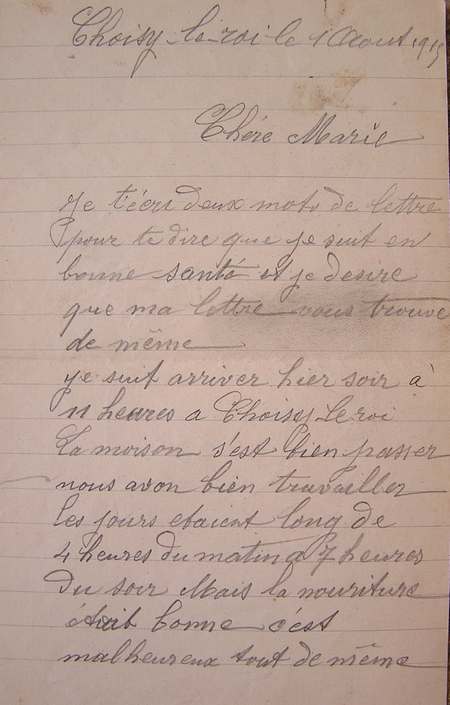 Choisy-le-roi le 1 Aout 1915
Chére Marie
Je t'écri deux mots de lettre
pour te dire que je suit en
bonne santé et je desire
que ma lettre vous trouve
de même
je suit arriver hier soir à
11 heures a Choisy-le roi
La moison s'est bien passer
nous avon bien travailler
les jours etaient long de
4 heures du matin a 7 heures
Du soir Mais la nouriture
était bonne c'est
malheureux tout de même